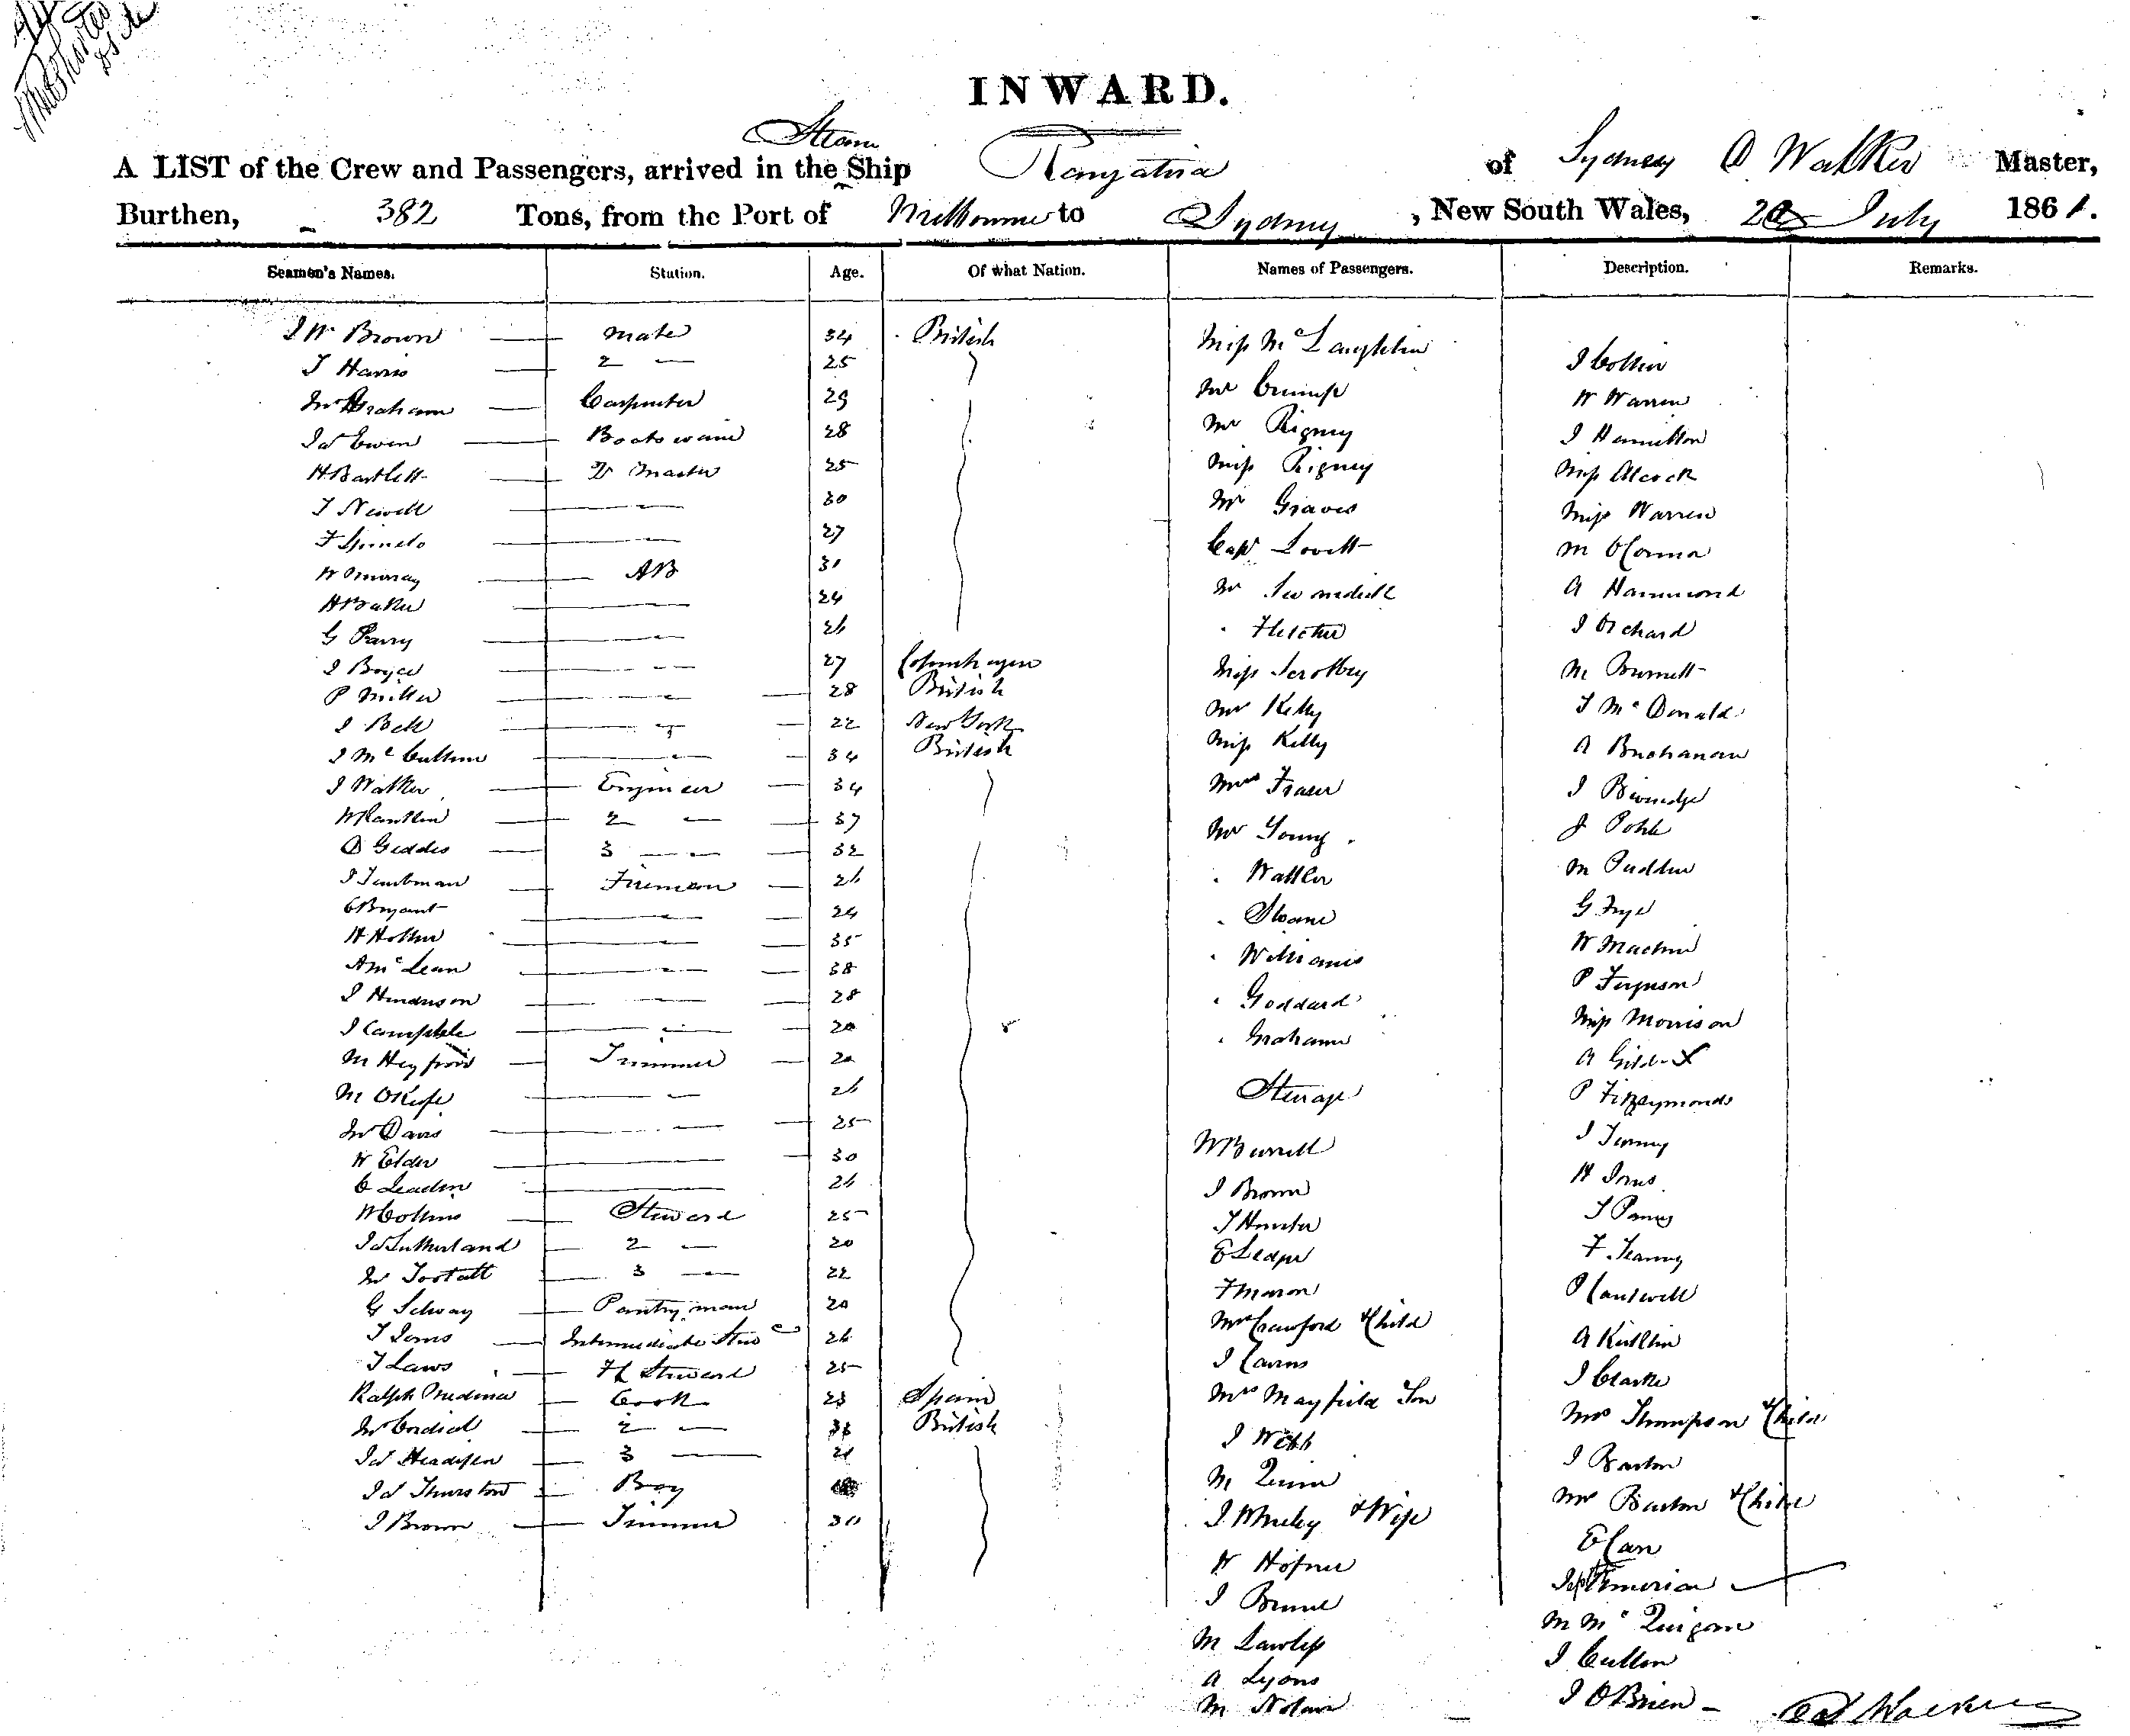 INWARD.
Steam
A LIST of the Crew and Passengers, arrived in the Ship Rangatira of Sydney D Walker Master,
Burthen, 382 Tons, from the Port of Melbourne to Sydney, New South Wales, July 1861.
Seamen's Names. Station. Age. Of what Nation. Names of Passengers. Description. Remarks.
J W Brown Mate 34 British
T Harris 2 — 25
Jno Graham Carpenter 29
Jas Ewen Boatswain 28
H Bartlett Qr Master 25
T Newell — 30
— 27
W Murray AB 31
H Baker — 24
G Parry — 26
J Boyce — 27 Copenhagen
P Miller — 28 British
J Bell — 22 New York
J McCallum — 34 British
J Walker Engineer 34
W Rankin 2 — 37
D Geddes 3 — 32
J Taubman Fireman 26
C Bryant — 24
H Hollm — 35
A McLean — 38
J Henderson — 28
J Campbell — 20
M Trimmer 20
M OKeefe — 26
Jno Davis — 25
W Elder — 30
C — 26
W Collins Steward 25
Jas Sutherland 2 — 20
Jno Tootall 3 — 22
G Selway Pantryman 20
T Jones Intermediate Stewd 26
T Laws Steward 25
Ralph Medina Cook 23 Spain
Jno Cordial 2 — British
Jas 3 — 21
Jas Thurston Boy
J Brown Trimmer 30
Miss McLaughlin
Mr Crump
Mr Rigney
Miss Rigney
Mr Graves
Capt Lovett
Mr
" Fletcher
Miss Scrotbey
Mr Kelly
Miss Kelly
Mrs Fraser
Mr Young
" Walker
" Sloane
" Williams
" Goddard
" Graham
Steerage
W Burrell
J Brown
T Hunter
E Ledger
F Mason
Mrs Crawford & Child
J Cairns
Mrs Mayfield Son
J Webb
M Quinn
J Wheley & Wife
W Hofner
J Brunel
M Lawless
A Lyons
M Nolan
J Collier
W Warren
J Hamilton
Miss Alcock
Miss Warren
M OConnor
A Hammond
J Orchard
M Burnett
T McDonald
A Buchanan
J Beveridge
J Pohl
M Pudden
G Frye
W Machin
P Ferguson
Miss Morrison
A
P Fitzsymonds
J
H Jones
T
F
P Cantwell
A
J Clarke
Mrs Thompson & Child
J Barton
Mrs Barton & Child
E Carr
M McQuigan
J Cullen
J OBrien